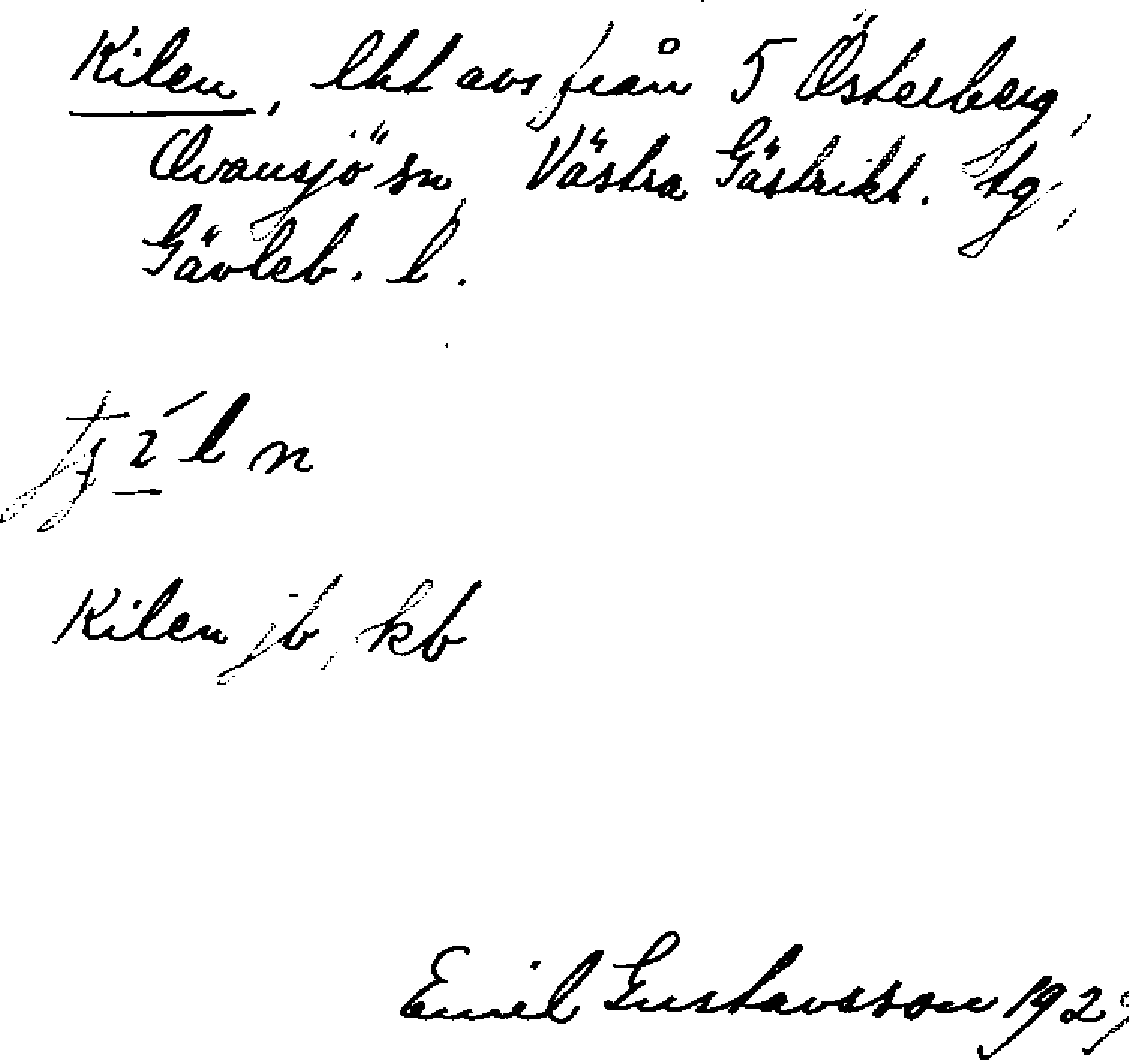 Kilen, lht avs från 5 Österberg,
Ovansjö sn, Västra Gästrikl. tg,
Gävleb. l.
Kilen jb, kb
Emil Gustavsson 192